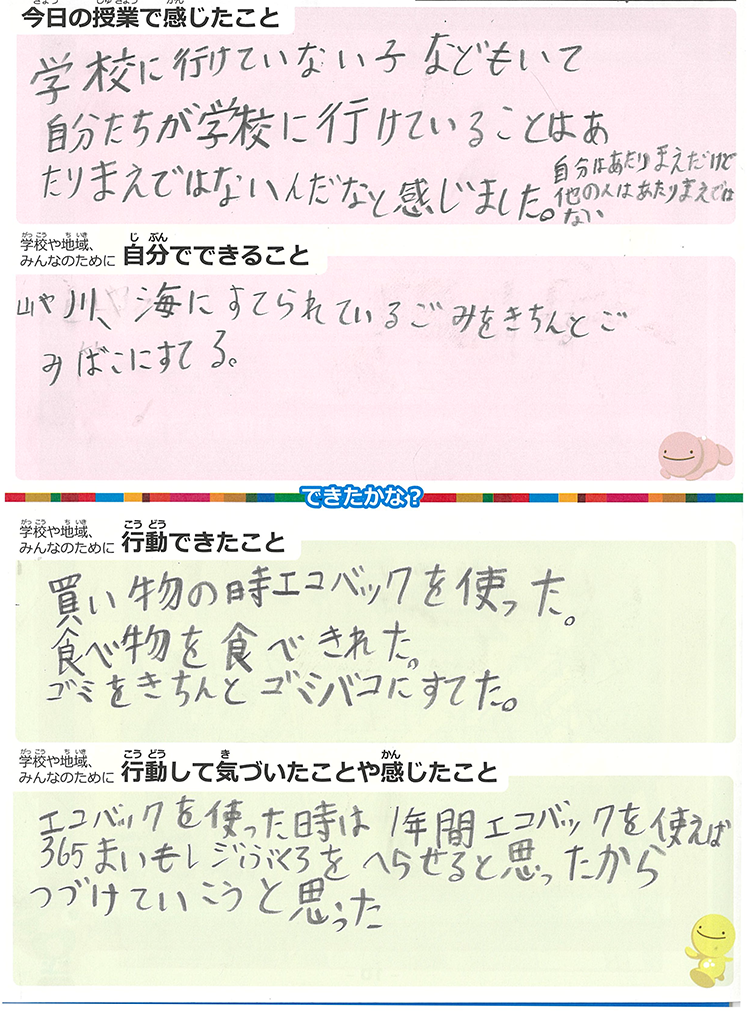 今日の授業で感じたこと
学校に行けていない子などもいて
自分たちが学校に行けていることはあ
たりまえではないんだなと感じました。
自分はあたりまえだけど
他の人はあたりまえでは
ない
がっこう ちいき
学校や地域、
みんなのために
じぶん
自分でできること
山や川、海にすてられているごみをきちんとご
みばこにすてる。
できたかな?
がっこう ちいき
学校や地域、
みんなのために
こうどう
行動できたこと
買い物の時エコバックを使った。
食べ物を食べきれた。
ゴミをきちんとゴミバコにすてた。
がっこう ちいき
学校や地域、
みんなのために
こうどう き かん
行動して気づいたことや感じたこと
エコバックを使った時は1年間エコバックを使えば
365まいもレジぶくろをへらせると思ったから
つづけていこうと思った